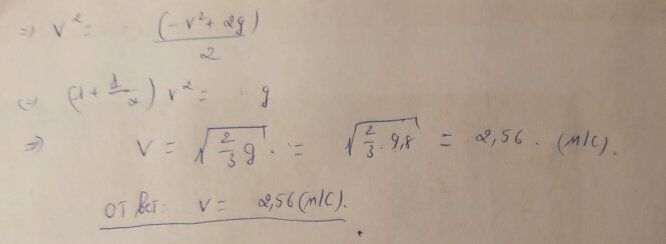 => v² = (-v² + 2g) / 2
<=> (1 + 1/2) v² = g
=> v = √(2/3 g) · = √(2/3 · 9,8) = 2,56 · (м/с).
ответ: v = 2,56 (м/с).